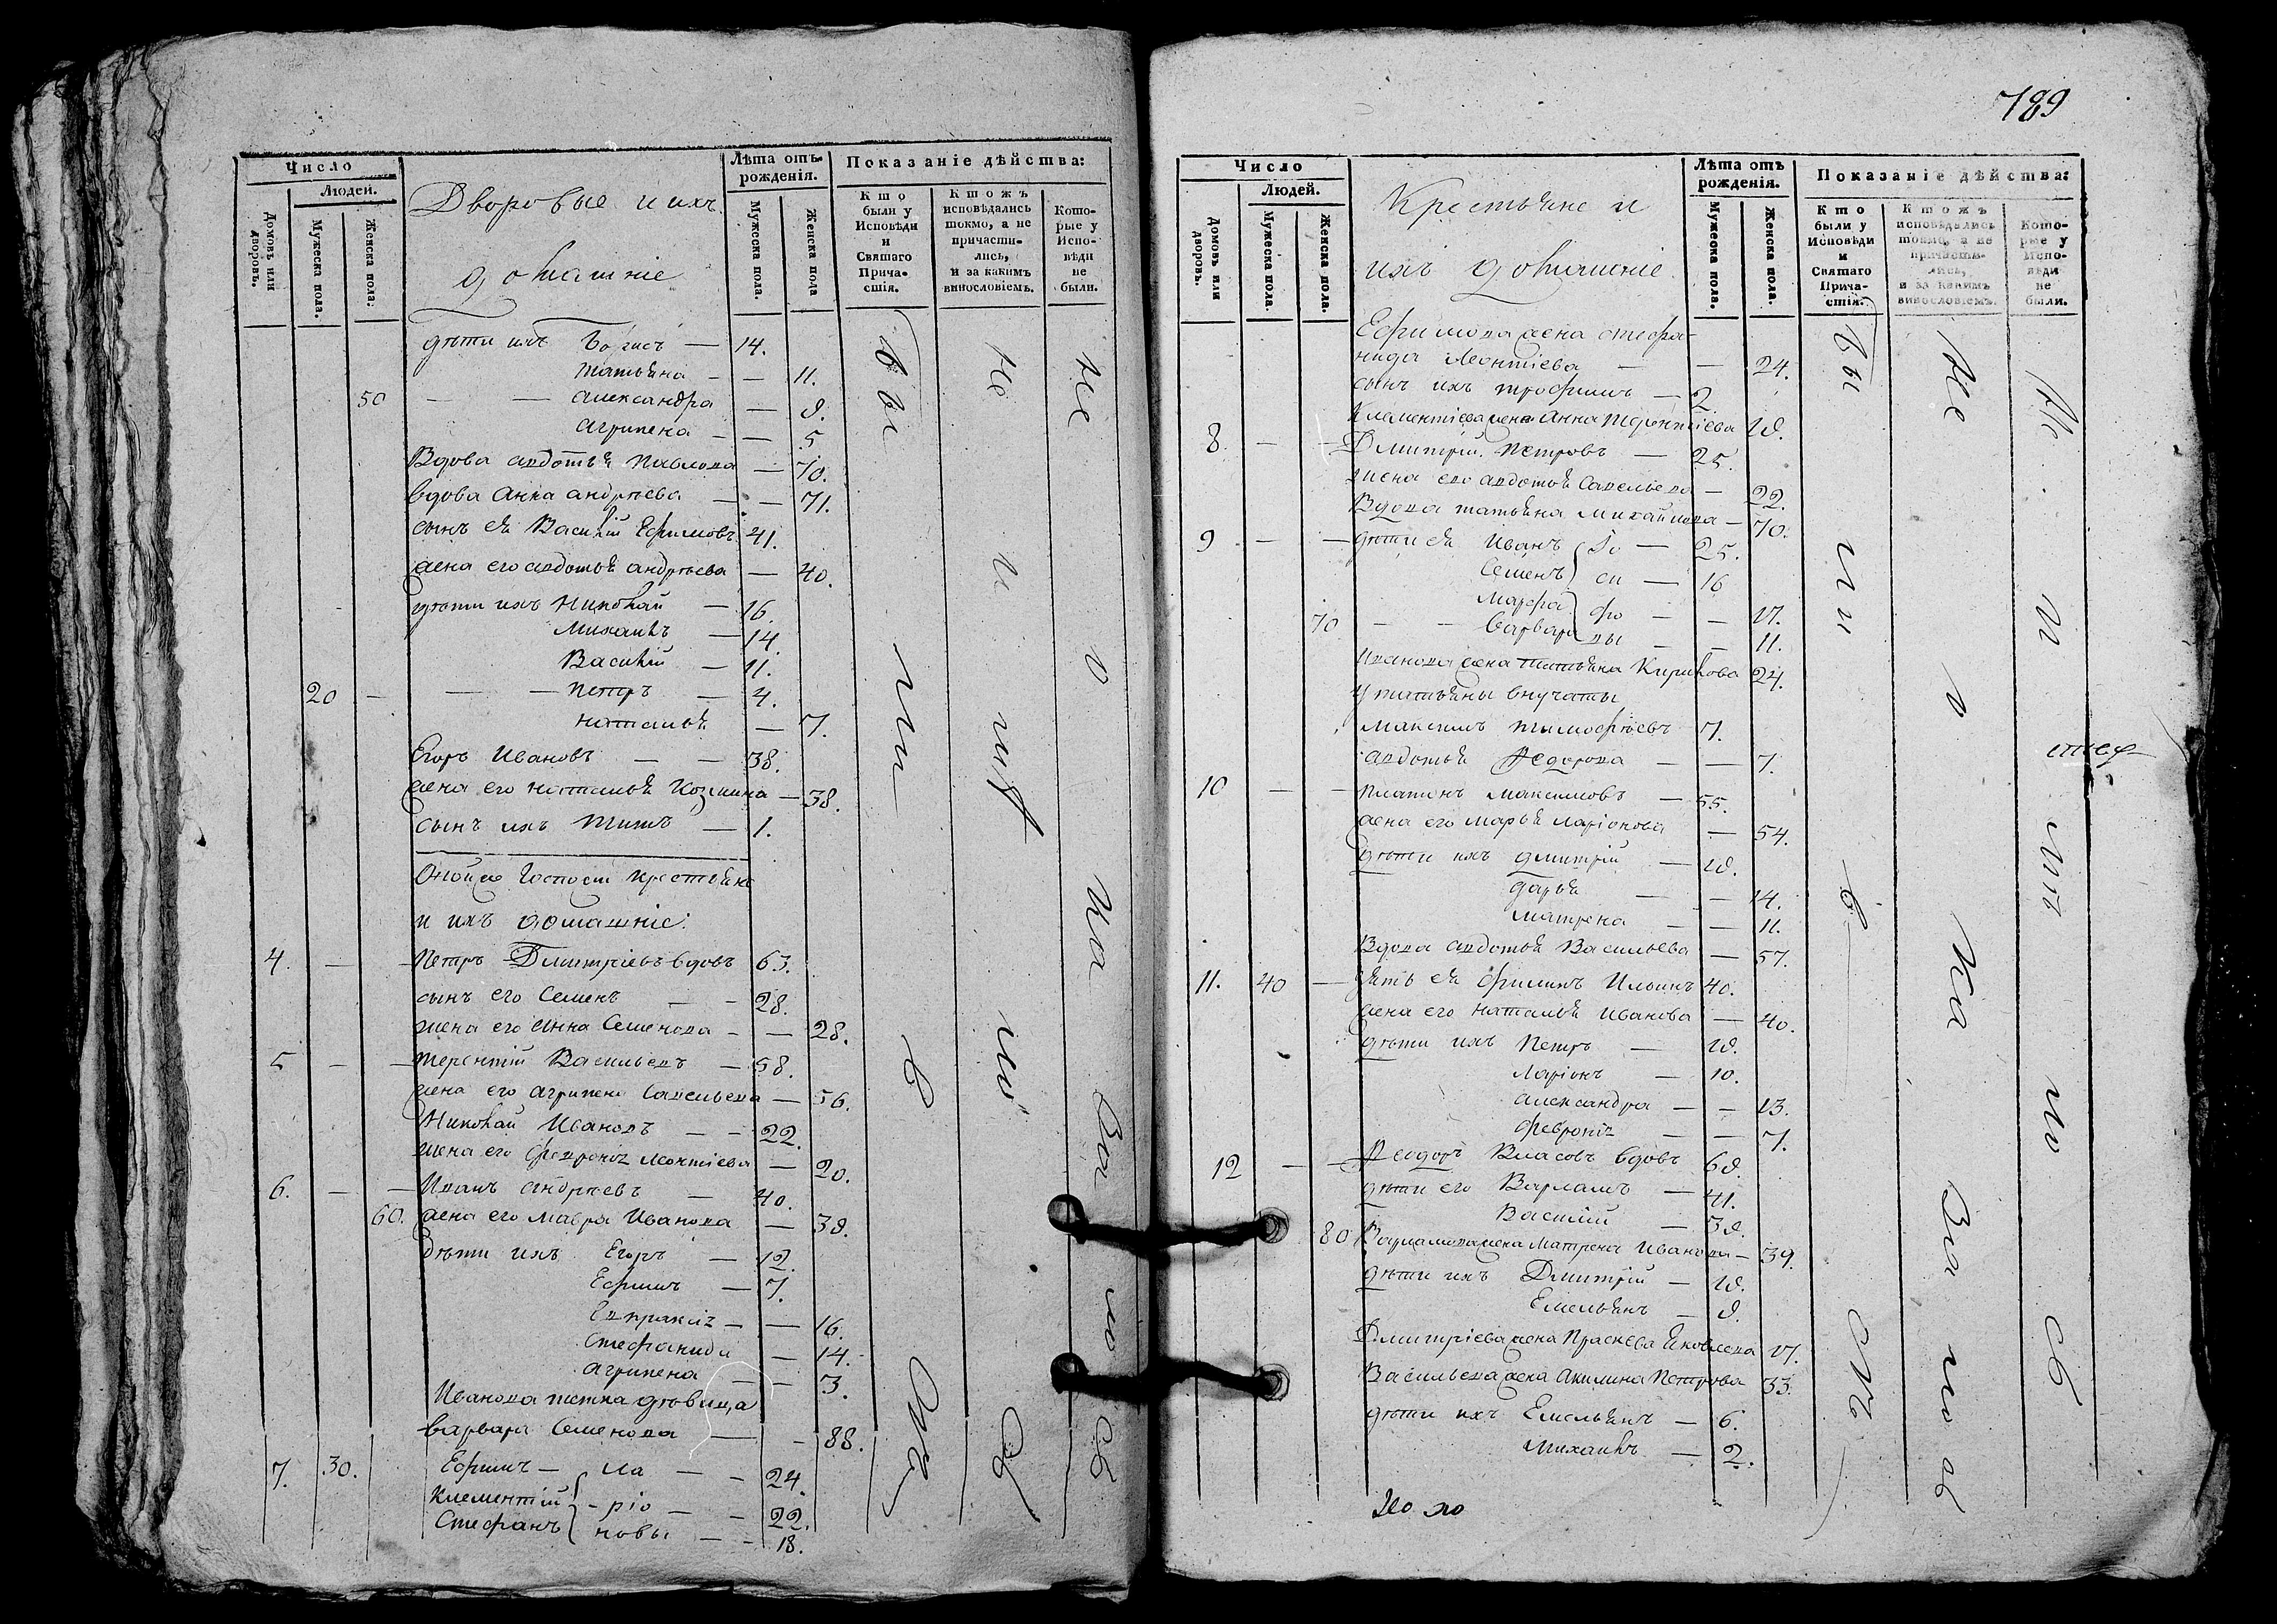 Число
Людей.
Домовъ или дворовъ.
Мужеска пола.
Женска пола:
Дворовые и ихъ
домашніе
Лѣта отъ рожденія.
Мужеска пола.
Женска пола
Показаніе дѣйства:
Кто были у Исповѣди и Святаго Причастія.
Ктожъ исповѣдались токмо, а не причастились, и за какимъ винословіемъ.
Которые у Исповѣди не были.
дѣти ихъ Борисъ — 14.
татьяна — — 11.
50 — — александра — 8.
агрипена — — 5
Вдова авдотья павлова — 70.
вдова Анна андрѣева — — 71.
сынъ ея Василій Ефимовъ 41.
жена его авдотья андрѣева — 40.
дѣти ихъ Николай — 16.
Михаилъ — 14.
Василій — 11.
20 — — — петръ — 4.
наталья — 7.
Егоръ Ивановъ — — 38.
жена его наталья Козмина — 38.
сынъ ихъ титъ — 1.
Господи крестьяне
и ихъ домашніе:
4. — — Петръ Дмитріевъ вдовъ 63.
сынъ его Семенъ — — 28.
жена его Анна Семенова — — 28.
5 — — терентій Васильевъ — 58.
жена его агрипена Савельева — 56.
Николай Ивановъ — — 22.
жена его Феврониа леонтіева — 20.
6. — — Иванъ андрѣевъ — 40.
60. жена его мавра Иванова — 38.
дѣти ихъ Егоръ — 12.
Ефимъ — 7.
Евпраксіа — — 16.
Стефанида — 14.
агрипена — — 3.
Иванова тетка дѣвица
варвара Семенова — — 88.
7. 30. Ефимъ — ла — — 24.
Клементій — ріо — — 22.
Стефанъ новы — — 18.
Были
у
Не
Не
789
Число
Людей.
Домовъ или дворовъ.
Мужеска пола.
Женска пола.
Крестьяне и
ихъ домашніе
Лѣта отъ рожденія.
Мужеска пола.
Женска пола.
Показаніе дѣйства:
Кто были у Исповѣди и Святаго Причастія.
Ктожъ исповѣдались токмо, а не причастились, и за какимъ винословіемъ.
Которые у Исповѣди не были.
Ефимова жена стефа-
нида Леонтіева — — 24.
сынъ ихъ трофимъ — 2
Клементіева жена Анна терентіева 18.
8. — — Дмитрій Петровъ — 25.
жена его авдотья Савельева — 22.
Вдова татьяна михайлова — 70.
9 — — дѣти ея Иванъ Го — 25.
Семенъ си — 16
марфа фо — — 17.
70 — — варвара вы — — 11.
Иванова жена татьяна Кирилова 24.
у татьяны внучаты
максимъ тимофѣевъ 7.
авдотья Федорова — — 7.
10 — — платонъ максимовъ — 55.
жена его марья ларіонова — 54.
дѣти ихъ дмитрій — 18.
дарья — — 14.
матрена — — 11.
Вдова авдотья Васильева — 57.
11. 40 — зять ея филипъ Ильинъ 40.
жена его наталья Иванова — 40.
дѣти ихъ Петръ — 18.
ларіонъ — 10.
александра — — 13.
февроніа — — 7.
12 — — Феодоръ Власовъ вдовъ 68.
дѣти его Варламъ — 41.
Василій — 38.
80 Варламова жена Матрена Иванова — 39.
дѣти ихъ Дмитрій — 18.
Емельянъ — 8.
Дмитріева жена Прасковя Яковлева 17.
Васильева жена Акилина Петрова 33.
дѣти ихъ Емельянъ — 6.
Михаилъ — 2.